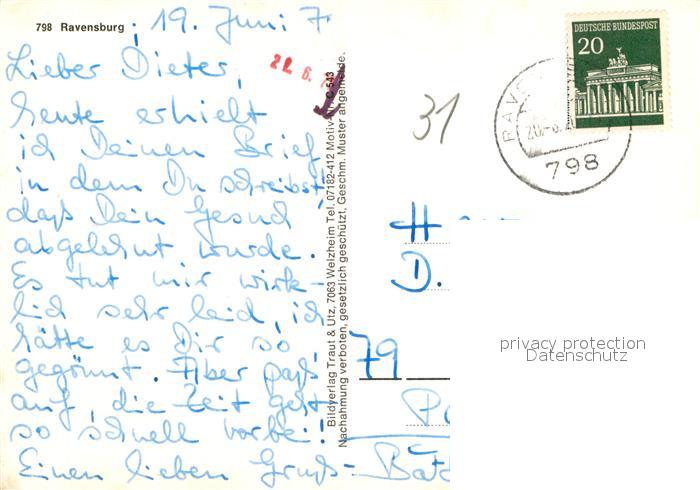 798 Ravensburg, 19. Juni 7
Lieber Dieter,
heute erhielt
ich Deinen Brief
in dem Du schreibst,
daß Dein Gesuch
abgelehnt wurde.
Es tut mir wirk-
lich sehr leid, ich
hätte es Dir so
gegönnt. Aber paß
auf, die Zeit geht
so schnell vorbei!
Einen lieben Gruß -
22. 6.
Bildverlag Traut & Utz, 7063 Welzheim Tel. 07182-412 Motiv-Nr. C 543
Nachahmung verboten, gesetzlich geschützt, Geschm. Muster angemeldet.
31
DEUTSCHE BUNDESPOST
20
RAVE
20.-6.
798
H
D.
79
privacy protection
Datenschutz